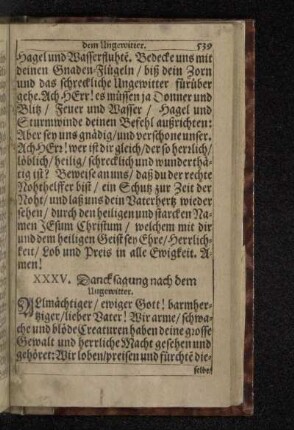 dem Ungewitter. 539
Hagel und Wasserfluhtē. Bedecke uns mit
deinen Gnaden-Flügeln / biß dein Zorn
und das schreckliche Ungewitter fürüber
gehe. Ach HErr! es müssen ja Donner und
Blitz / Feuer und Wasser / Hagel und
Sturmwinde deinen Befehl außrichten:
Aber sey uns gnädig / und verschone unser.
Ach HErr! wer ist dir gleich / der so herrlich /
löblich / heilig / schrecklich und wunderthä-
tig ist? Beweise an uns / daß du der rechte
Nohthelffer bist / ein Schutz zur Zeit der
Noht / und laß uns dein Vaterhertz wieder
sehen / durch den heiligen und starcken Na-
men JEsum Christum / welchem mit dir
und dem heiligen Geist sey Ehre / Herrlich-
keit / Lob und Preis in alle Ewigkeit. A-
men!
XXXV. Dancksagung nach dem
Ungewitter.
ALlmächtiger / ewiger Gott! barmher-
tziger / lieber Vater! Wir arme / schwa-
che und blöde Creaturen haben deine grosse
Gewalt und herrliche Macht gesehen und
gehöret: Wir loben / preisen und fürchtē die-
selbe /